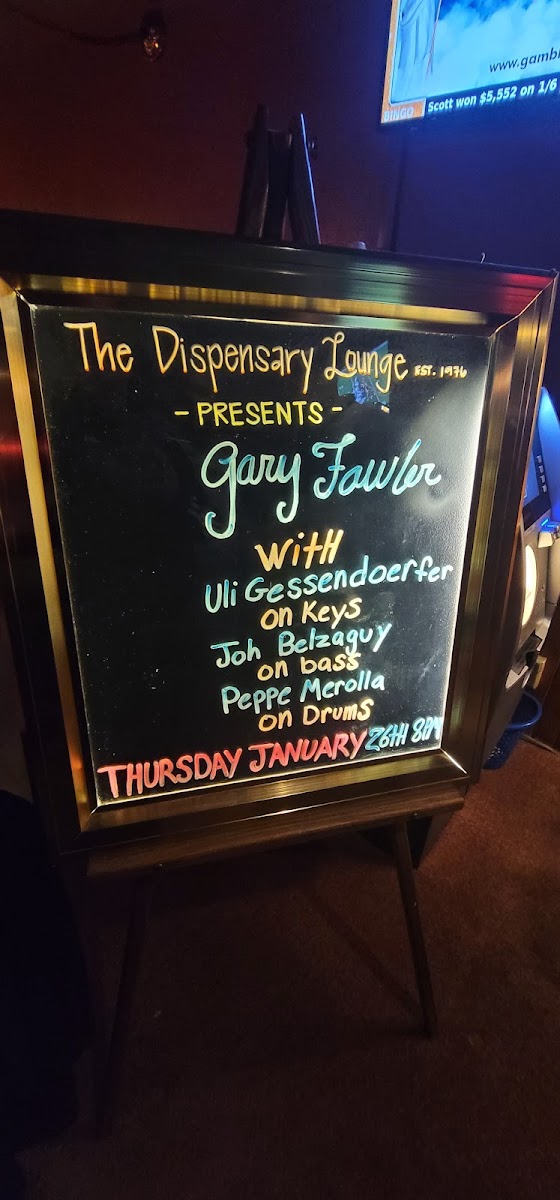 www.gambl
BINGO
Scott won $5,552 on 1/6
The Dispensary Lounge EST. 1976
- PRESENTS -
Gary Fowler
WITH
Uli Gessendoerfer
on Keys
Joh Belzaguy
on bass
Peppe Merolla
on Drums
THURSDAY JANUARY 26TH 8PM